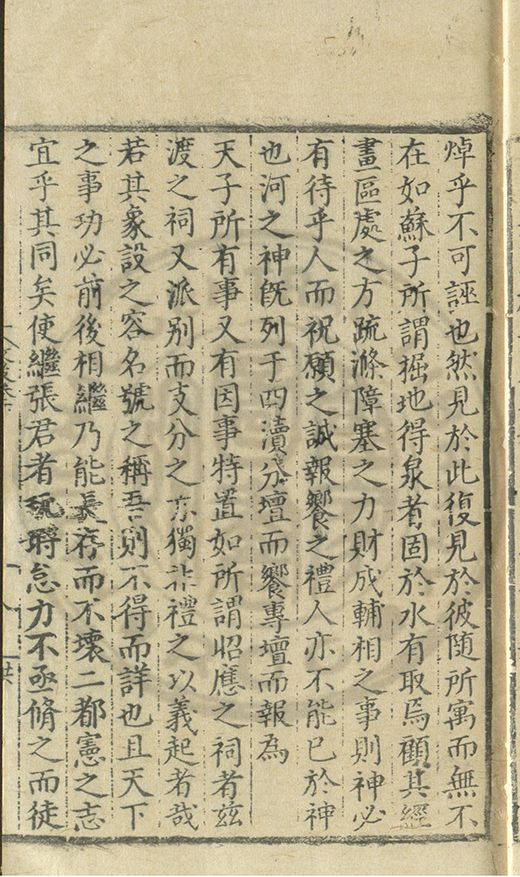 焯乎不可誣也然見於此復見於彼随所寓而無不
在如蘇子所謂掘地得泉者固於水有取焉顧其經
畫區處之方疏滌障塞之力財成輔相之事則神必
有待乎人而祝願之誠報饗之禮人亦不能已於神
也河之神旣列于四瀆分壇而饗專壇而報為
天子所有事又有因事特置如所謂昭應之祠者玆
渡之祠又派别而支分之亦獨非禮之以義起者哉
若其象設之容名號之稱吾則不得而詳也且天下
之事功必前後相繼乃能長存而不壊二都憲之志
宜乎其同矣使繼張君者玩愒怠力不亟脩之而徒